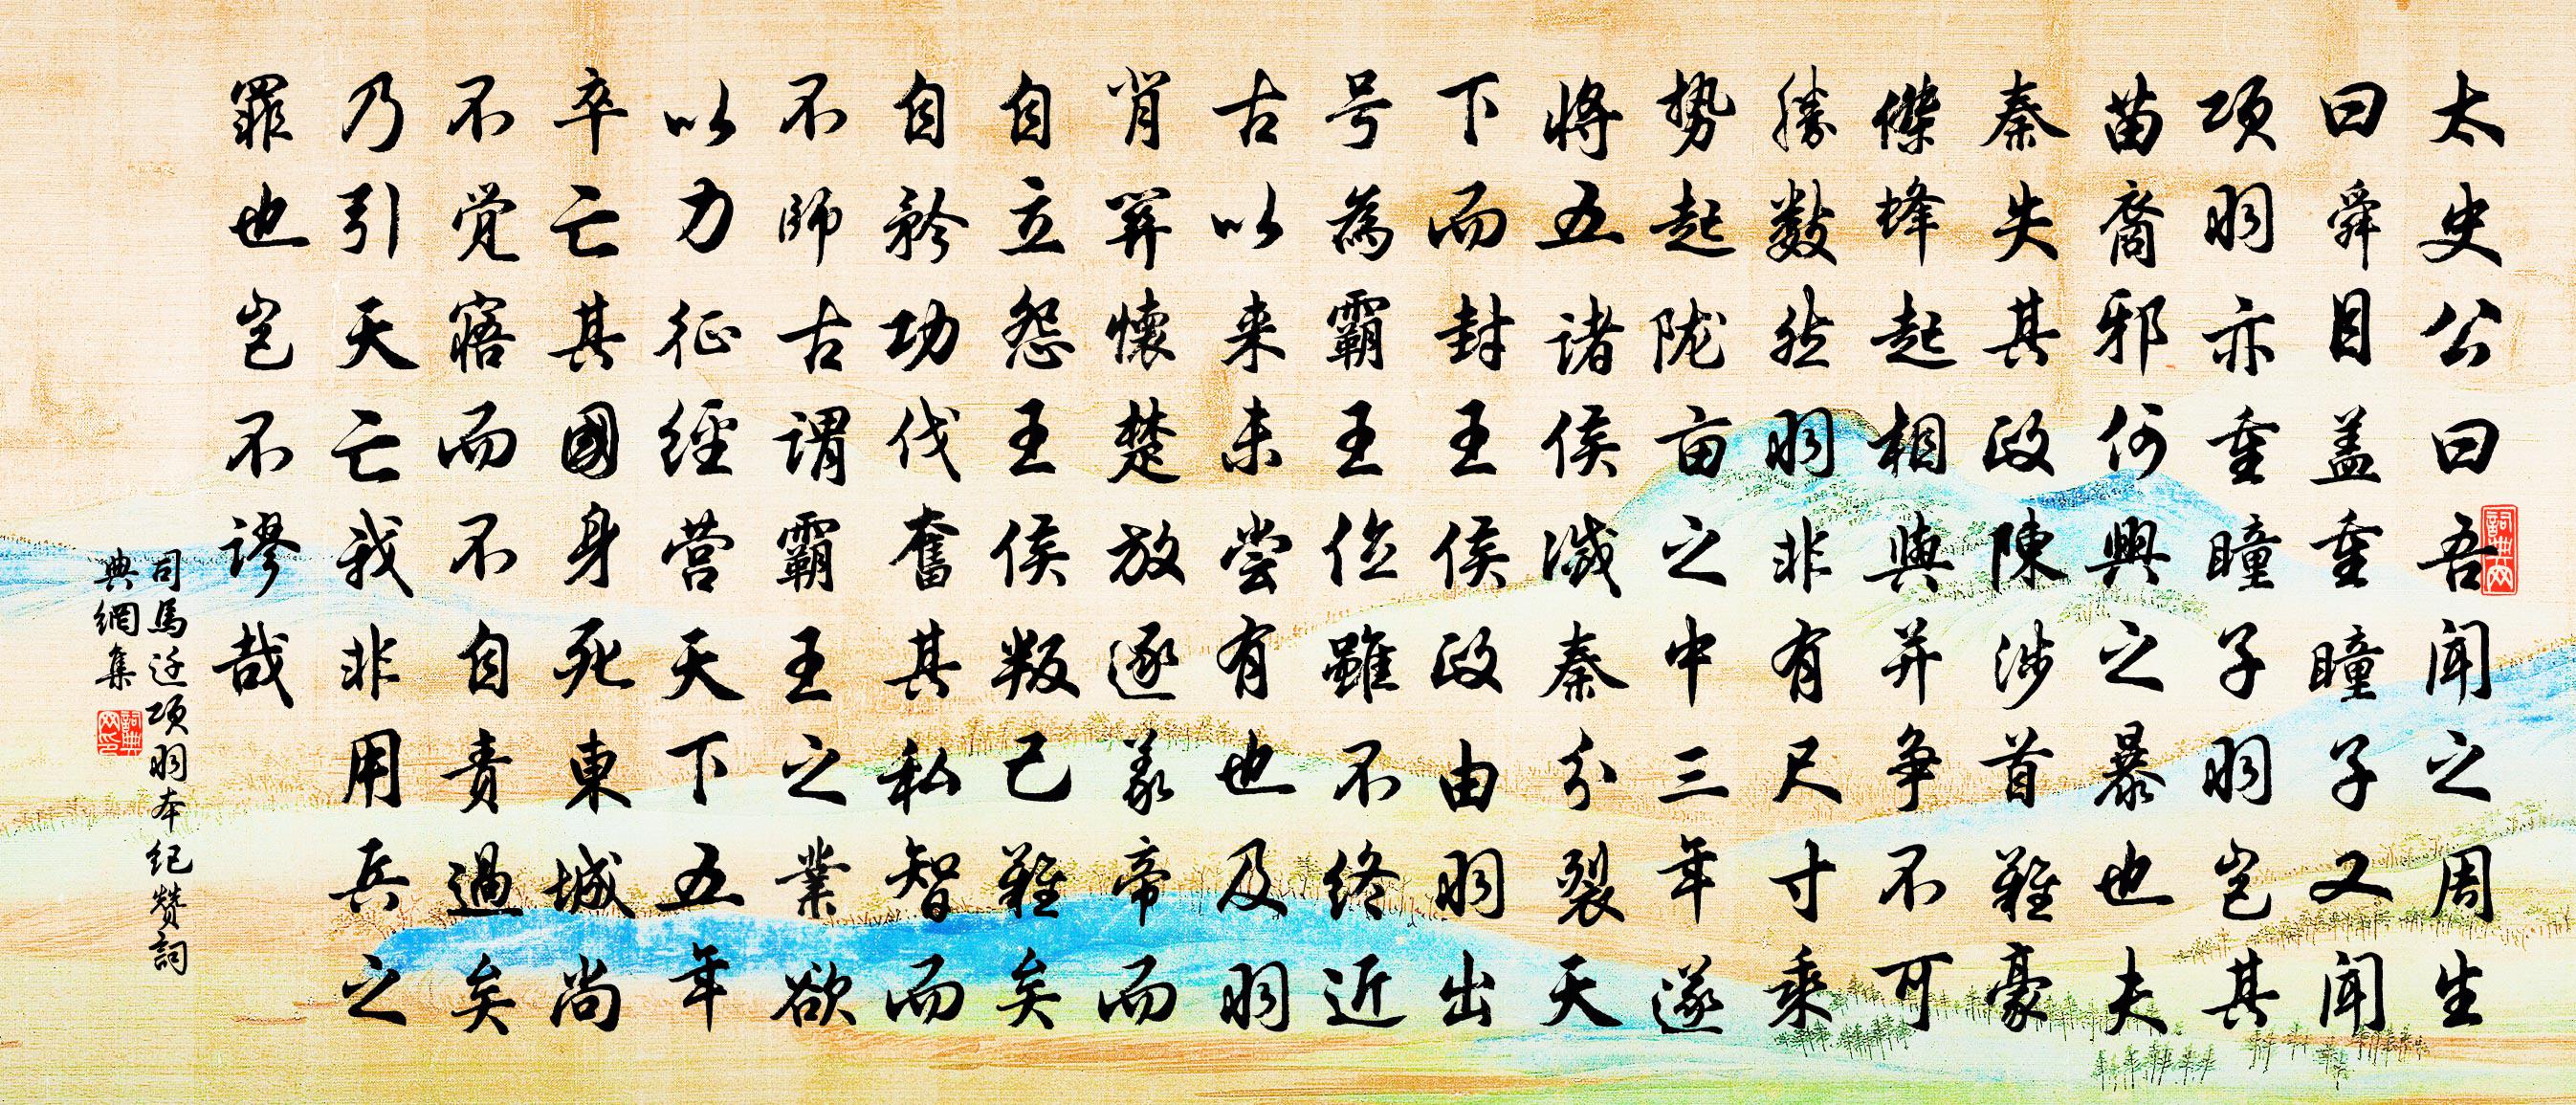 太史公曰吾聞之周生
曰舜目盖重瞳子又聞
项羽亦重瞳子羽岂其
苗裔邪何興之暴也夫
秦失其政陳涉首難豪
傑蜂起相與并争不可
勝数然羽非有尺寸乘
势起陇亩之中三年遂
将五诸侯滅秦分裂天
下而封王侯政由羽出
号為霸王位雖不终近
古以来未尝有也及羽
背关懷楚放逐義帝而
自立怨王侯叛己難矣
自矜功伐奮其私智而
不師古謂霸王之業欲
以力征經营天下五年
卒亡其國身死東城尚
不觉寤而不自责過矣
乃引天亡我非用兵之
罪也岂不谬哉
司馬迁项羽本纪赞詞
典網集
詞典网
詞典网印